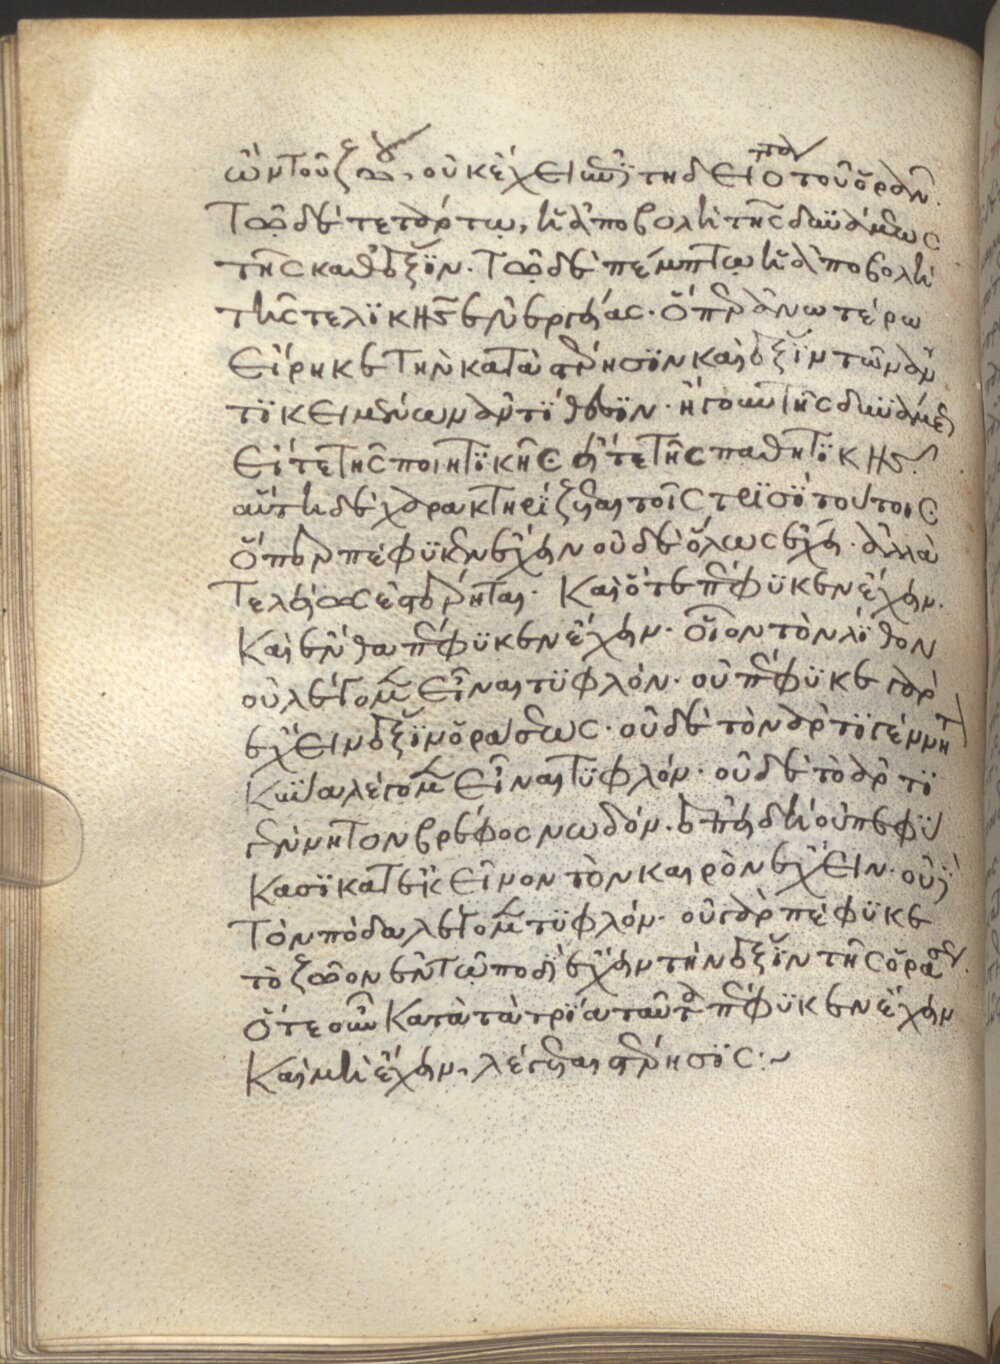 ὢν τοῦ ζώου, οὐκ ἔχει καὶ τῇδε ἱπποτουὁρᾶν.
Τῷ δὲ τετάρτω, ἡ ἀποβολὴ τῆς δυνάμεως
τῆς καθ' ἕξϊν. Τῷ δὲ πέμπτω ἡ ἀποβολὴ
τῆς τελϊκῆς ἐνεργείας. ὅπερ ἀνωτέρω
εἴρηκε τὴν κατὰ στέρησϊν καὶ ἕξϊν τῶν ἀν
τϊκειμένων ἀντίθεσϊν. ἤγουν τῆς δυνάμεως
εἴτε τῆς ποιητϊκῆς εἴτε τῆς παθητϊκῆς.
αὕτη δὲ χαρακτηρίζεται τοῖς τρϊσὶ τούτοις
ὅπερ πέφϋκεν ἔχειν οὐδὲ ὅλως ἔχει. ἀλλὰ
τελείως ἐστέρηται. Καὶ ὅτε πέφϋκεν ἔχειν.
Καὶ ἔνθα πέφϋκεν ἔχειν. οἷον τὸν λίθον
οὐ λέγομεν εἶναι τϋφλόν. οὐ πέφϋκε γὰρ
ἔχειν ἕξϊν ὁράσεως. οὐδὲ τὸν ἀρτϊγέννητ
κύνα λέγομεν εἶναι τϋφλόν. οὐδὲ τὸ ἀρτϊ
γέννητον βρέφος νωδόν. ἐπειδὴ οὐ πεφύ
κασϊ κατ' ἐκεῖνον τὸν καιρὸν ἔχειν. οὐδὲ
τὸν πόδα λέγομεν τϋφλόν. οὐ γὰρ πέφϋκε
τὸ ζῶον ἐν τῷ ποδὶ ἔχειν τὴν ἕξϊν τῆς ὁράσεως.
ὅτε οὖν κατὰ τὰ τρία ταῦτα πέφϋκεν ἔχειν
Καὶ μὴ ἔχειν, λέγεται στέρησϊς.